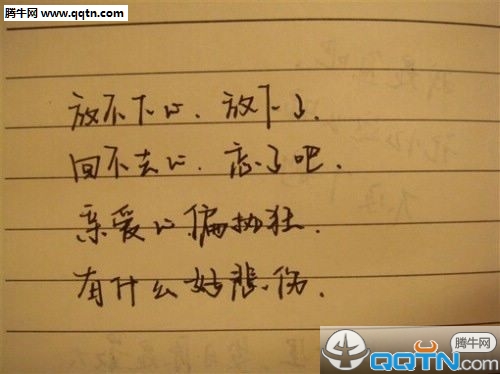 腾牛网 www.qqtn.com
放不下的.放下了.
回不去的.忘了吧.
亲爱的.偏执狂.
有什么好悲伤.
腾牛网
QQTN.com